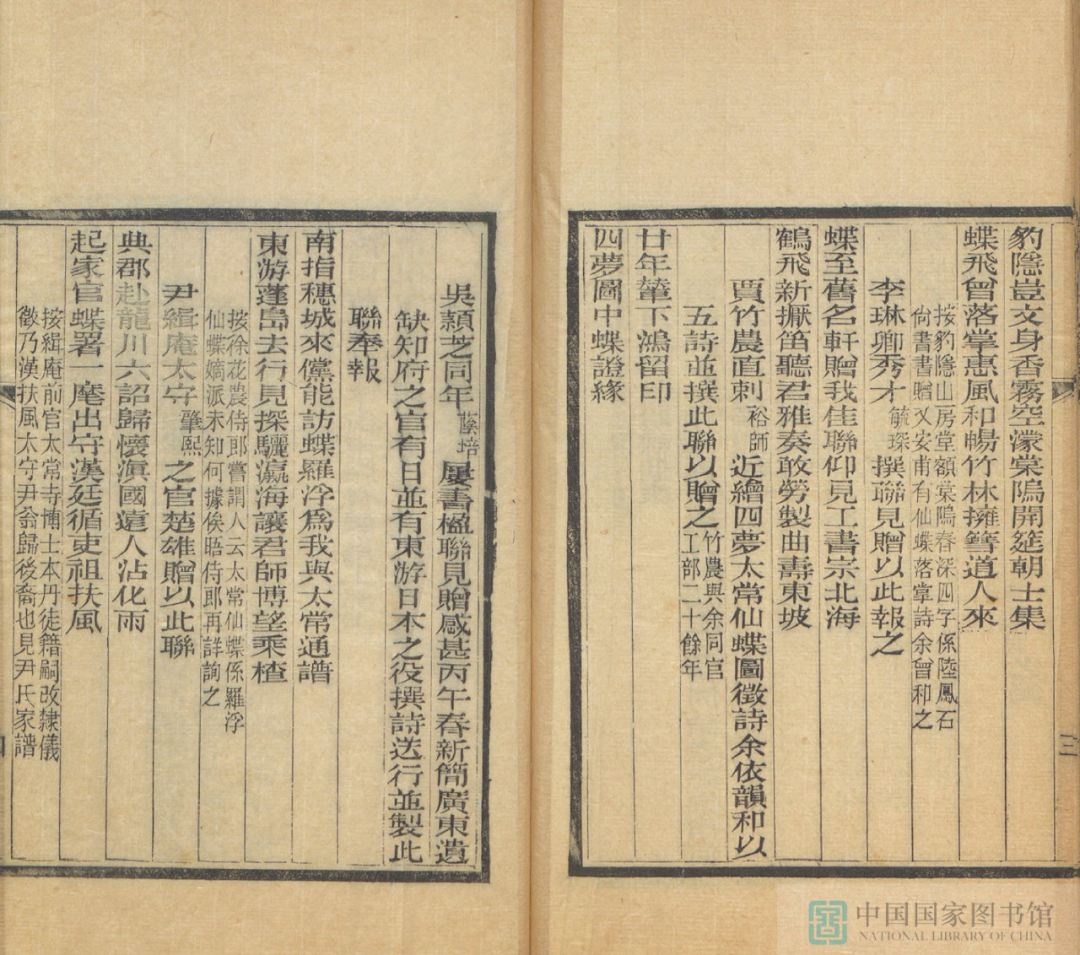 豹隱豈文身香霧空濛棠鄔開筵朝士集
蝶飛曾落掌惠風和暢竹林擁篲道人來
按豹隱山房堂額棠鄔春深四字係陸鳳石
尙書書贈又安甫有仙蝶落掌詩余曾和之
李琳卿秀才毓琛撰聯見贈以此報之
蝶至舊名軒贈我佳聯仰見工書宗北海
鶴飛新擫笛聽君雅奏敢勞製曲壽東坡
賈竹農直刺裕師近繪四夢太常仙蝶圖徵詩余依韻和以
五詩並撰此聯以贈之竹農與余同官
工部二十餘年
廿年輦下鴻留印
四夢圖中蝶證緣
三
吳頴芝同年蔭培屢書楹聯見贈感甚丙午春新簡廣東遺
缺知府之官有日並有東游日本之役撰詩送行並製此
聯奉報
南指穗城來儻能訪蝶羅浮爲我與太常通譜
東游蓬島去行見探驪瀛海讓君師博望乘楂
按徐花農侍郎嘗謂人云太常仙蝶係羅浮
仙蝶嫡派未知何據俟晤侍郎再詳詢之
尹緝庵太守肇熙之官楚雄贈以此聯
典郡赴龍川六詔歸懷滇國遠人沾化雨
起家官蝶署一麾出守漢廷循吏祖扶風
按緝庵前官太常寺博士本丹徒籍嗣改隸儀
徵乃漢扶風太守尹翁歸後裔也見尹氏家譜